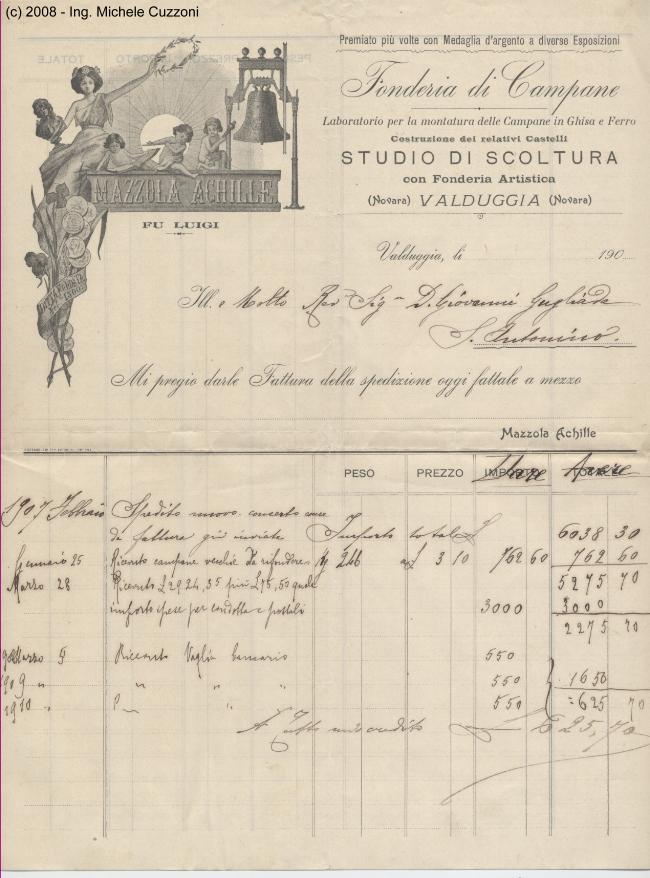 (c) 2008 - Ing. Michele Cuzzoni
Premiato più volte con Medaglia d'argento a diverse Esposizioni
Fonderia di Campane
Laboratorio per la montatura delle Campane in Ghisa e Ferro
Costruzione dei relativi Castelli
STUDIO DI SCOLTURA
con Fonderia Artistica
(Novara) VALDUGGIA (Novara)
MAZZOLA ACHILLE
FU LUIGI
Valduggia, li 190
Ill. e Molto Rev Sig D. Giovanni
S. Antonino.
Mi pregio darle Fattura della spedizione oggi fattale a mezzo
Mazzola Achille
PESO PREZZO Dare Avere
1907 Febbraio Spedito nuovo concerto come
da fattura già inviata Importo total £ 6038 30
Gennaio 25 Ricevuto campane vecchie da rifondere Kg 246 a £ 3 10 762 60 762 60
Marzo 28 Ricevuto £ 2924,35 più £ 75,50 quale 5275 70
importo spese per condotta e postali 3000 3000
2275 70
908 Marzo 5 Ricevuto Vaglia bancario 550
1909 " " " " 550 1650
1910 " " " 550 = 625 70
A tutto mio credito £ 625,70